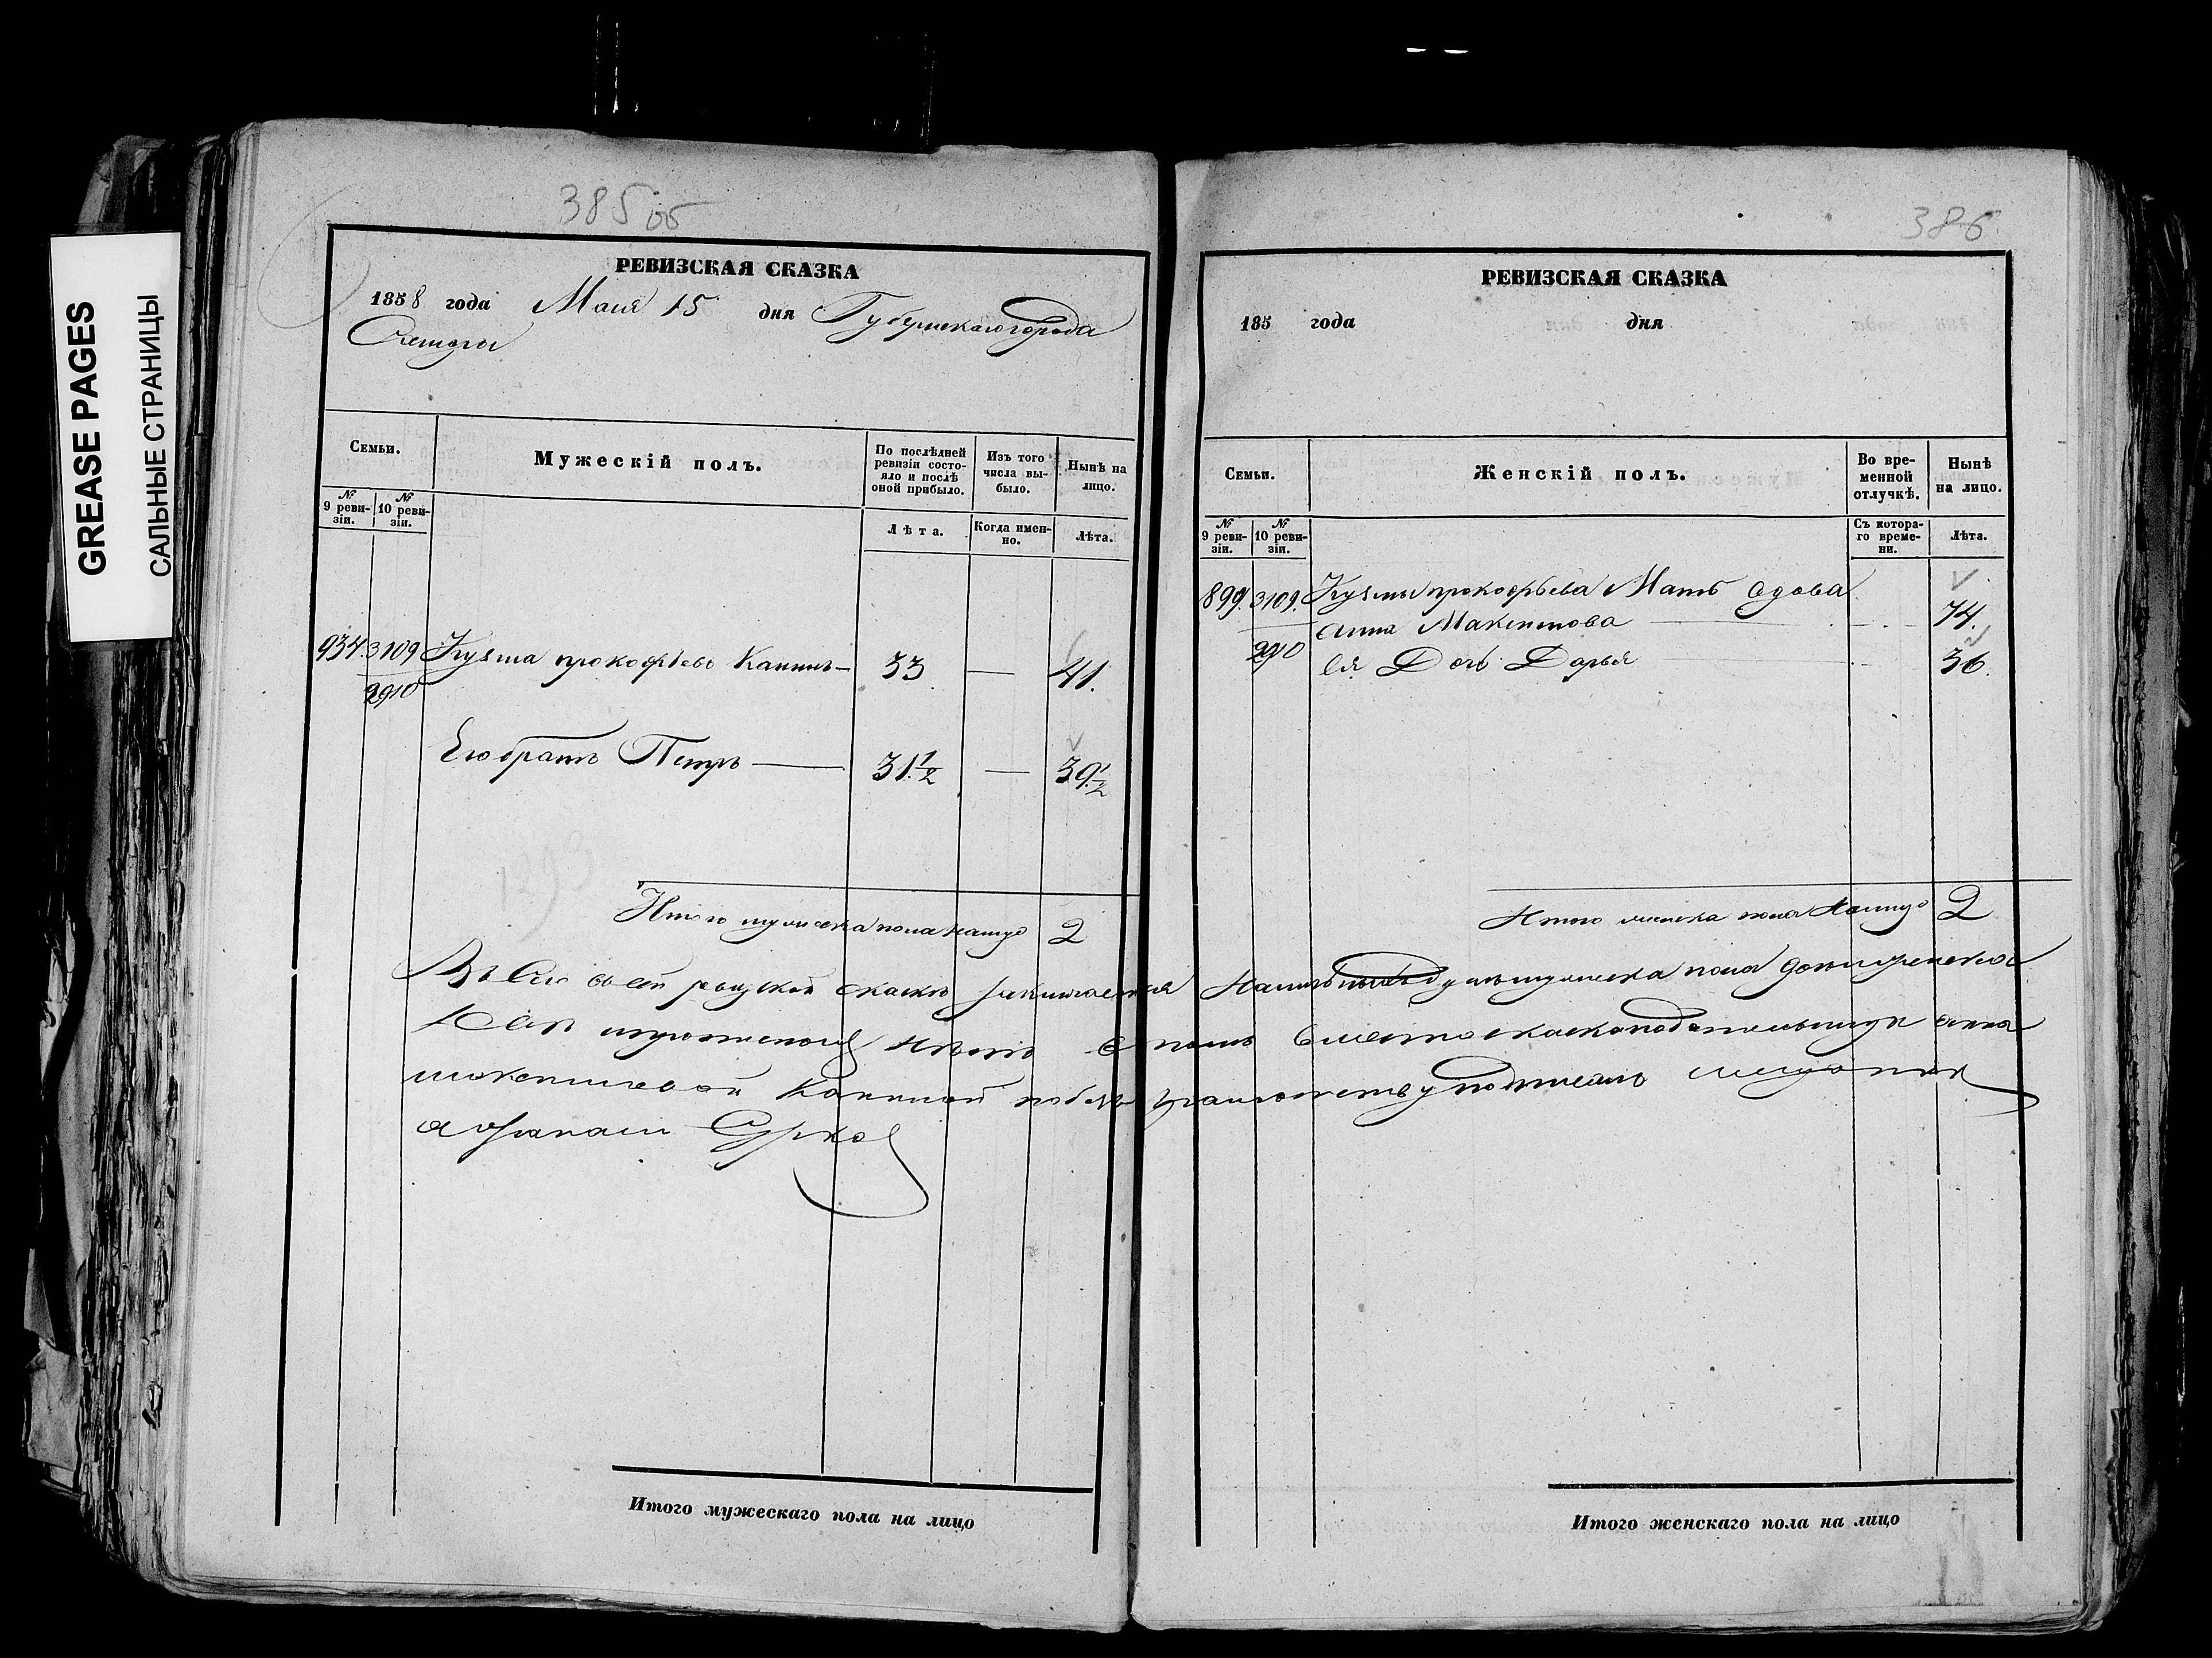 GREASE PAGES
САЛЬНЫЕ СТРАНИЦЫ
385 об
РЕВИЗСКАЯ СКАЗКА
1858 года Мая 15 дня Губернскаго города
Семьи.
Мужескій полъ.
По послѣдней ревизіи состояло и послѣ оной прибыло.
Изъ того числа выбыло.
Нынѣ на лицо.
№ 9 ревизіи.
№ 10 ревизіи.
Лѣта.
Когда именно.
Лѣта.
934. 3109 Кузма прокофьевъ Канинъ — 33 — 41.
2910
Его братъ Петръ — 31 1/2 — 39 1/2
1293
Итого мужска пола налицо 2
386
РЕВИЗСКАЯ СКАЗКА
185 года дня
Семьи.
Женскій полъ.
Во временной отлучкѣ.
Нынѣ на лицо.
№ 9 ревизіи.
№ 10 ревизіи.
Съ котораго времени.
Лѣта.
899. 3109. Кузмы прокофьева Мать вдова
Анна 74.
2910 ея Дочь Дарья 36.
Итого женска пола налицо 2
Въ сей сказки
мужска пола
Каниной подписалъ мещанинъ
Афанасій
Итого мужескаго пола на лицо
Итого женскаго пола на лицо